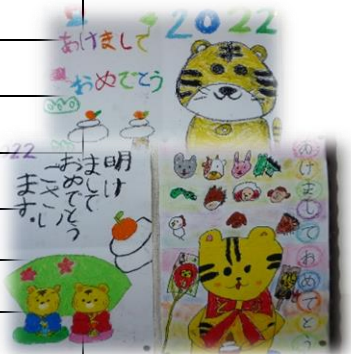 2022
あけまして
おめでとう
22
明け
まして
おめでとう
ござい
ます。
あけましておめでとう